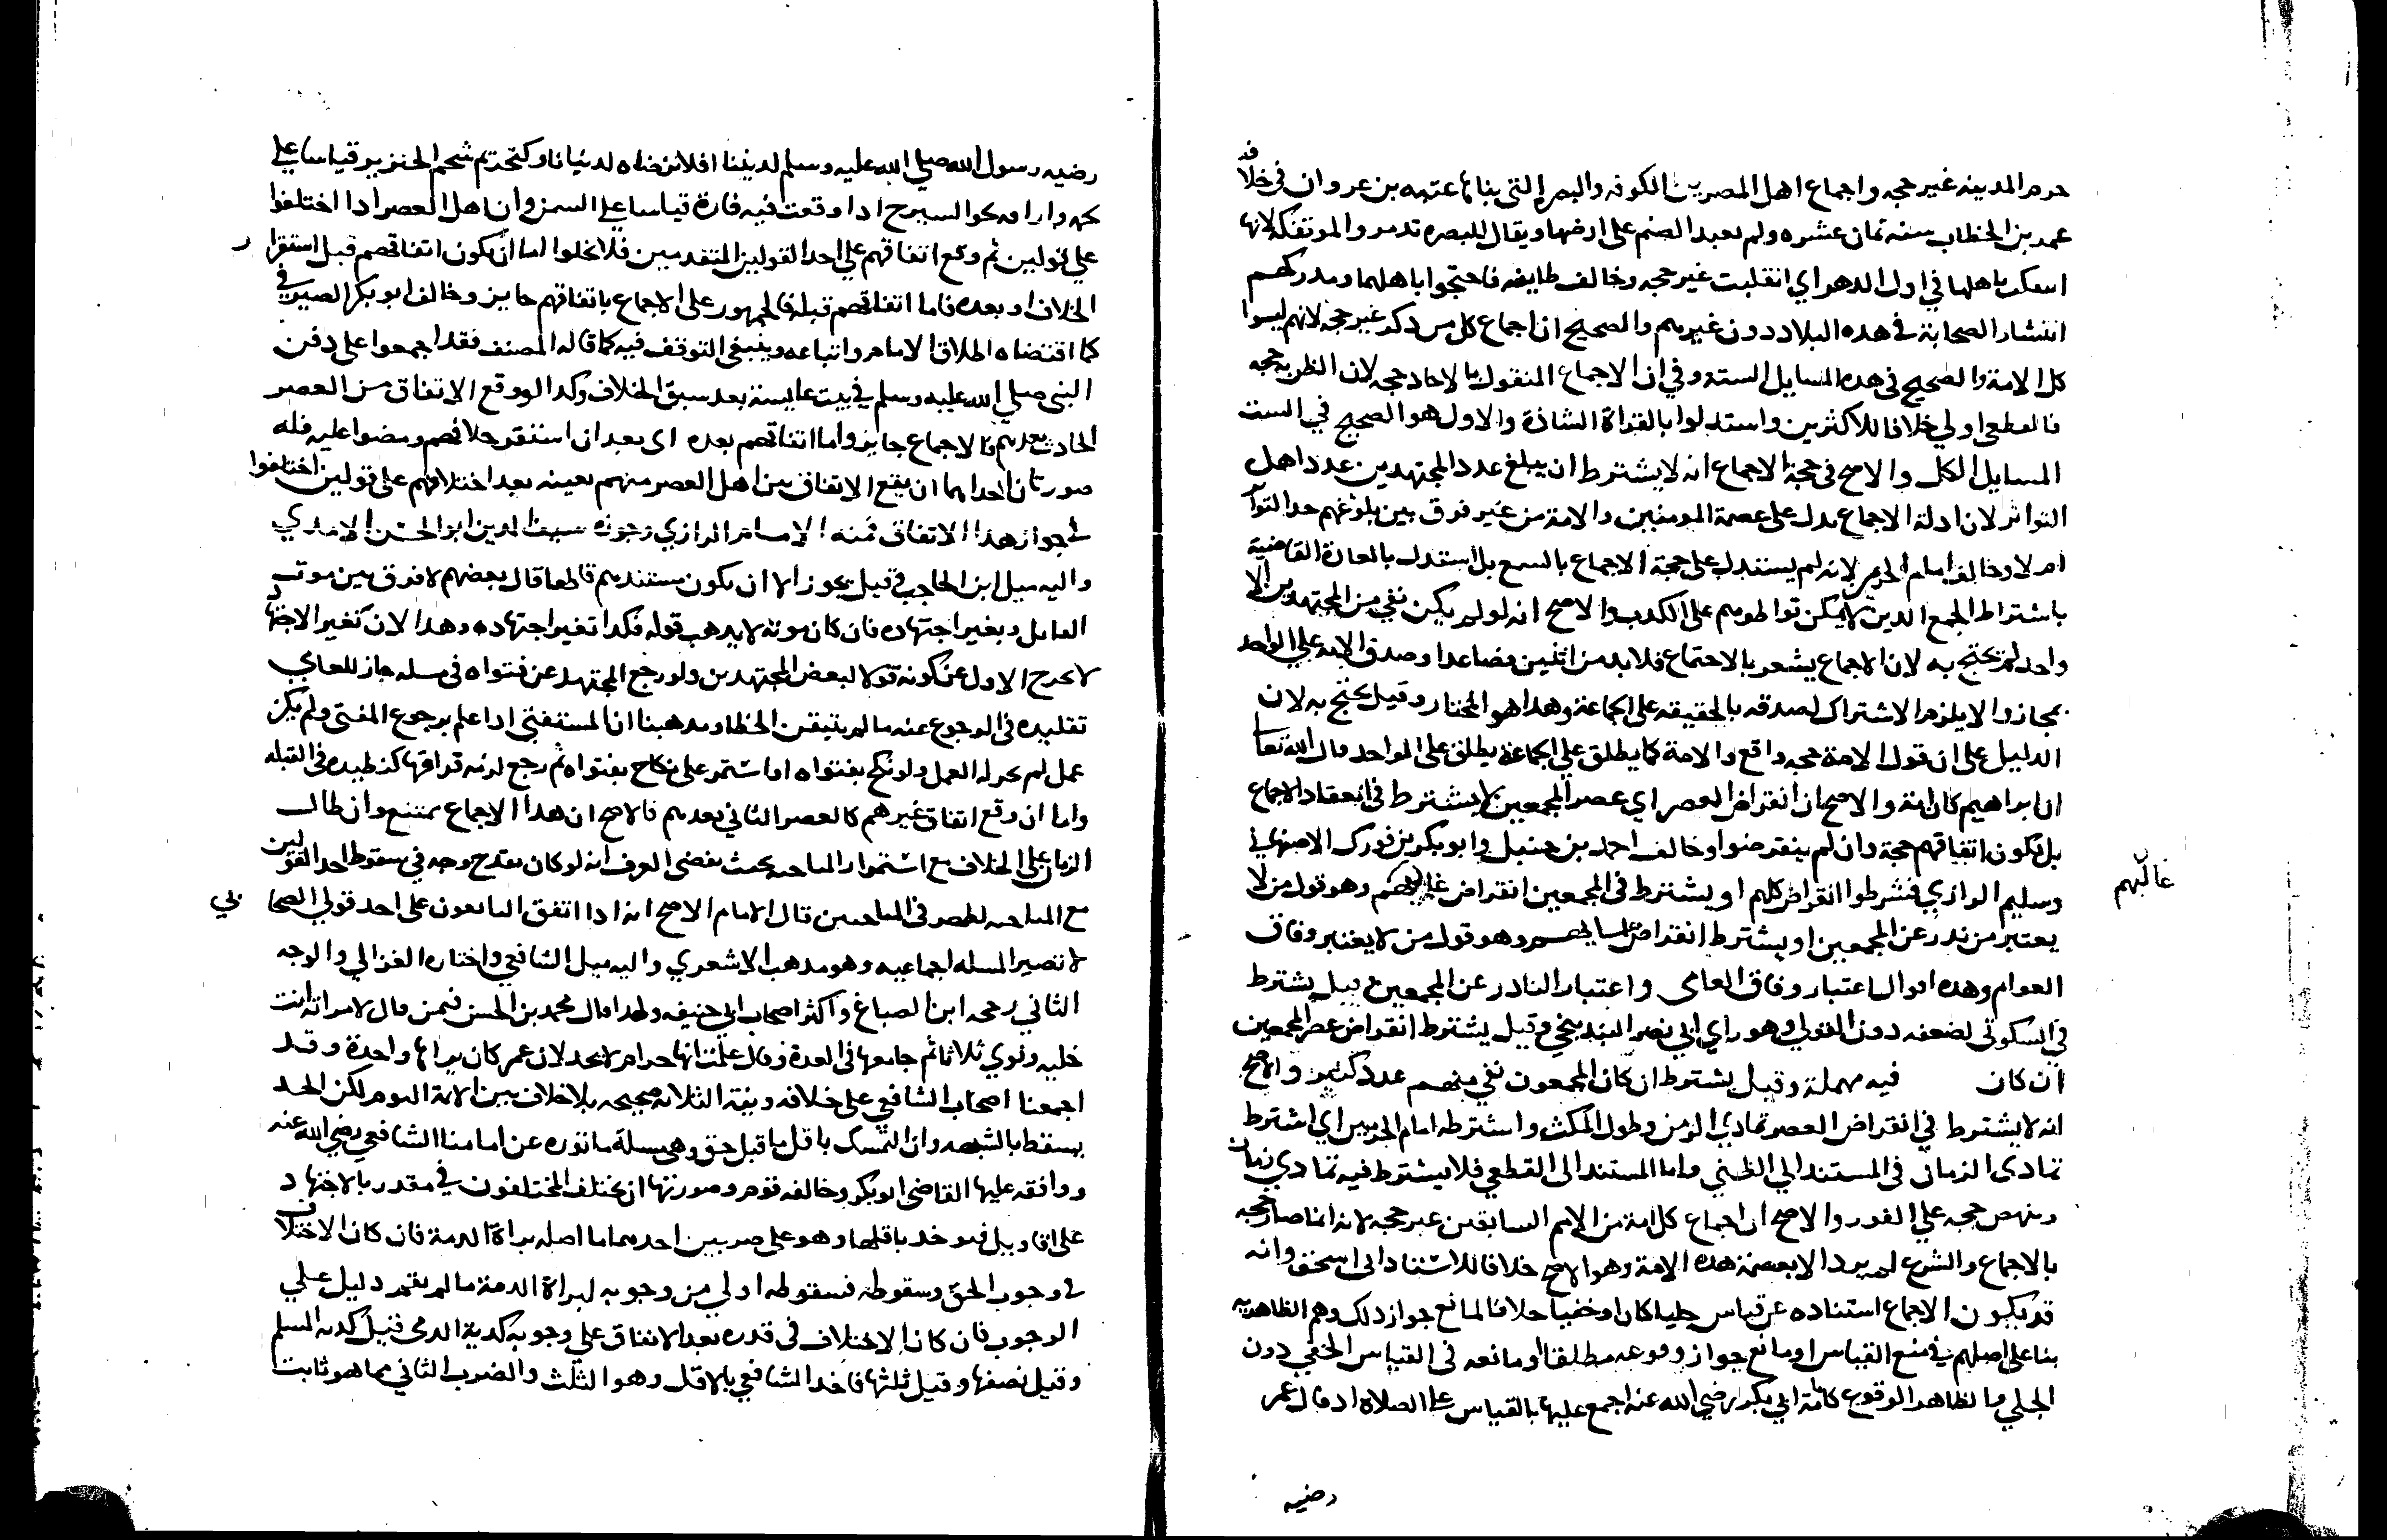 حرم المدينه غير حجه واجماع اهل المصرين الكوفه والبصره التي بناها عتبه بن عزوان في خلافه
عمر بن الخطاب سنه ثمان عشره ولم يعبد الصنم على ارضها ويقال للبصره تدمر والموتفكه لانها
اسعكت باهلها في اول الدهر اي انقلبت غير حجه وخالف طايفه فاحتجوا باهلهما ومدركهم
انتشار الصحابة في هذه البلاد دون غيرهم والصحيح ان اجماع كل من ذكر غير حجه لانهم ليسوا
كل الامة والصحيح في هذه المسايل الستة وفي ان الاجماع المنقول بالاحاد حجه لان الظن حجه
فالقطعي اولي خلافا للاكثرين واستدلوا بالقراة الشاذة والاول هو الصحيح في الست
المسايل الكل والاصح في حجة الاجماع انه لا يشترط ان يبلغ عدد المجتهدين عدد اهل
التواتر لان ادلة الاجماع تدل على عصمة المومنين والامة من غير فرق بين بلوغهم حد التوا
ام لا وخالف امام الحرمين لانه لم يستدل على حجة الاجماع بالسمع بل استدل بالعادة القاضية
باشتراط الجمع الذين لا يمكن تواطوهم على الكذب والاصح انه لو لم يكن بقي من المجتهدين الا
واحد لم يحتج به لان الاجماع يشعر بالاجتماع فلا بد من اثنين فصاعدا وصدق الامه علي الواحد
مجاز والا يلزم الاشتراك لصدقه بالحقيقه على الجماعة وهذا هو المختار وقيل يحتج به لان
الدليل على ان قول الامة حجه واقع والامة كما يطلق علي الجماعة يطلق على الواحد قال الله تعا
ان ابراهيم كان امة والاصح ان انقراض العصر اي عصر المجمعين لا يشترط في انعقاد الاجماع
بل تكون اتفاقهم حجة وان لم ينقرضوا وخالف احمد بن حنبل وابو بكر بن فورك الاصبهاني
وسليم الرازي فشرطوا انقراض كلهم او يشترط في المجمعين انقراض غالبهم وهو قول من لا
غالبهم
يعتبر من ندر عن المجمعين او يشترط انقراض علمايهم وهو قول من لا يعتبر وفاق
العوام وهذه اقوال اعتبار وفاق العامي واعتبار النادر عن المجمعين وقيل يشترط
في السكوتي لضعفه دون القولي وهو راي ابي نصر البندنيجي وقيل يشترط انقراض عصر المجمعين
ان كان فيه مهملة وقيل يشترط ان كان المجمعون بقي منهم عدد كثير والاصح
انه لا يشترط في انقراض العصر تمادي الزمن وطول المكث واشترطه امام الحرمين اي اشترط
تمادي الزمان في المستند الي الظني واما المستند الي القطعي فلا يشترط فيه تمادي زمان
وينهض حجه علي الفور والاصح ان اجماع كل امة من الامم السابقين غير حجه لانه انما صار حجه
بالاجماع والشرع لم يرد الا بعصمة هذه الامة وهو الاصح خلافا للاستناد ابي اسحق وانه
قد يكون الاجماع استناده عن قياس جليا كان او خفيا خلافا لمانع جواز ذلك وهم الظاهريه
بنا على اصلهم في منع القياس او مانع جواز وقوعه مطلقا او مانعه في القياس الخفي دون
الجلي والظاهر الوقوع كامامة ابي بكر رضي الله عنه اجمع عليها بالقياس علي الصلاة اذ قال عمر
رضيه
رضيه رسول الله صلي الله عليه وسلم لديننا افلا نرضاه لدنيانا وكتحريم شحم الخنزير قياسا علي
لحمه واراقه نحو السيرج اذا وقعت فيه فارة قياسا علي السمن وان اهل العصر اذا اختلفوا
علي قولين ثم وقع اتفاقهم علي احد القولين المتقدمين فلا يخلوا اما ان يكون اتفاقهم قبل استقرار
الخلاف او بعده فاما اتفاقهم قبله فالجمهور على الاجماع باتفاقهم جايز وخالف ابو بكر الصيرفي
كما اقتضاه اطلاق الامام واتباعه وينبغي التوقف فيه كما قاله المصنف فقد اجمعوا على دفن
النبي صلي الله عليه وسلم في بيت عايشة بعد سبق الخلاف وكذا لو وقع الاتفاق من العصر
الحادث بعدهم فالاجماع جايز واما اتفاقهم بعده اي بعد ان استقر خلافهم ومضوا عليه فله
صورتان احداهما ان يقع الاتفاق من اهل العصر منهم بعينه بعد اختلافهم على قولين اختلفوا
في جواز هذا الاتفاق فمنه الامام الرازي وجوزه سيف الدين ابو الحسن الامدي
واليه ميل ابن الحاجب وقيل يجوز الا ان يكون مستندهم قاطعا قال بعضهم لا فرق بين موت
القايل وبغير اجتهاده فان كان موته لا يذهب قوله فكذا تغير اجتهاده وهذا لان تغير الاجتهاد
لا يخرج الاول عن كونه قولا لبعض المجتهدين ولو رجع المجتهد عن فتواه في مسله جاز للعامي
تقليده في الرجوع عنه ما لم يتيقن الخطا ومذهبنا ان المستفتي اذا علم برجوع المفتي ولم يكن
عمل لم يجز له العمل ولو نكح بفتواه او استمر على نكاح بفتواه ثم رجع لزمه فراقها كنظيره في القبله
واما ان وقع اتفاق غيرهم كالعصر الثاني بعدهم فالاصح ان هذا الاجماع ممتنع وان طال
الزمان على الخلاف مع استمرار المباحثه بحيث يقضي العرف انه لو كان يقدح وجه في سقوط احد القولين
مع المباحثه لظهر في المباحثين قال الامام الاصح انه اذا اتفق التابعون على احد قولي الصحابي
لا تصير المسله اجماعيه وهو مذهب الاشعري واليه ميل الشافعي واختاره الغزالي والوجه
الثاني رجحه ابن الصباغ واكثر اصحاب ابي حنيفه ولهذا قال محمد بن الحسن فيمن قال لامراته انت
خليه ونوي ثلاثا ثم جامعها في العدة وقال علمت انها حرام لا يحد لان عمر كان يراها واحدة وقد
اجمعنا اصحاب الشافعي على خلافه ونية الثلاثه صحيحه بلا خلاف بين الامة اليوم لكن الحد
يسقط بالشبهه وان التمسك باقل ما قيل حق وهي مسلة ماثوره عن امامنا الشافعي رضي الله عنه
ووافقه عليها القاضي ابو بكر وخالفه قوم وصورتها ان يختلف المختلفون في مقدر بالاجتهاد
علي اقاويل فيوخذ باقلها وهو على ضربين احدهما ما اصله براة الذمة فان كان الاختلاف
في وجوب الحق وسقوطه فسقوطه اولي من وجوبه لبراة الذمة ما لم يقم دليل علي
الوجوب فان كان الاختلاف في قدره بعد الاتفاق علي وجوبه كدية الذمي فقيل كديه المسلم
وقيل نصفها وقيل ثلثها فاخذ الشافعي بالاقل وهو الثلث والضرب الثاني مما هو ثابت